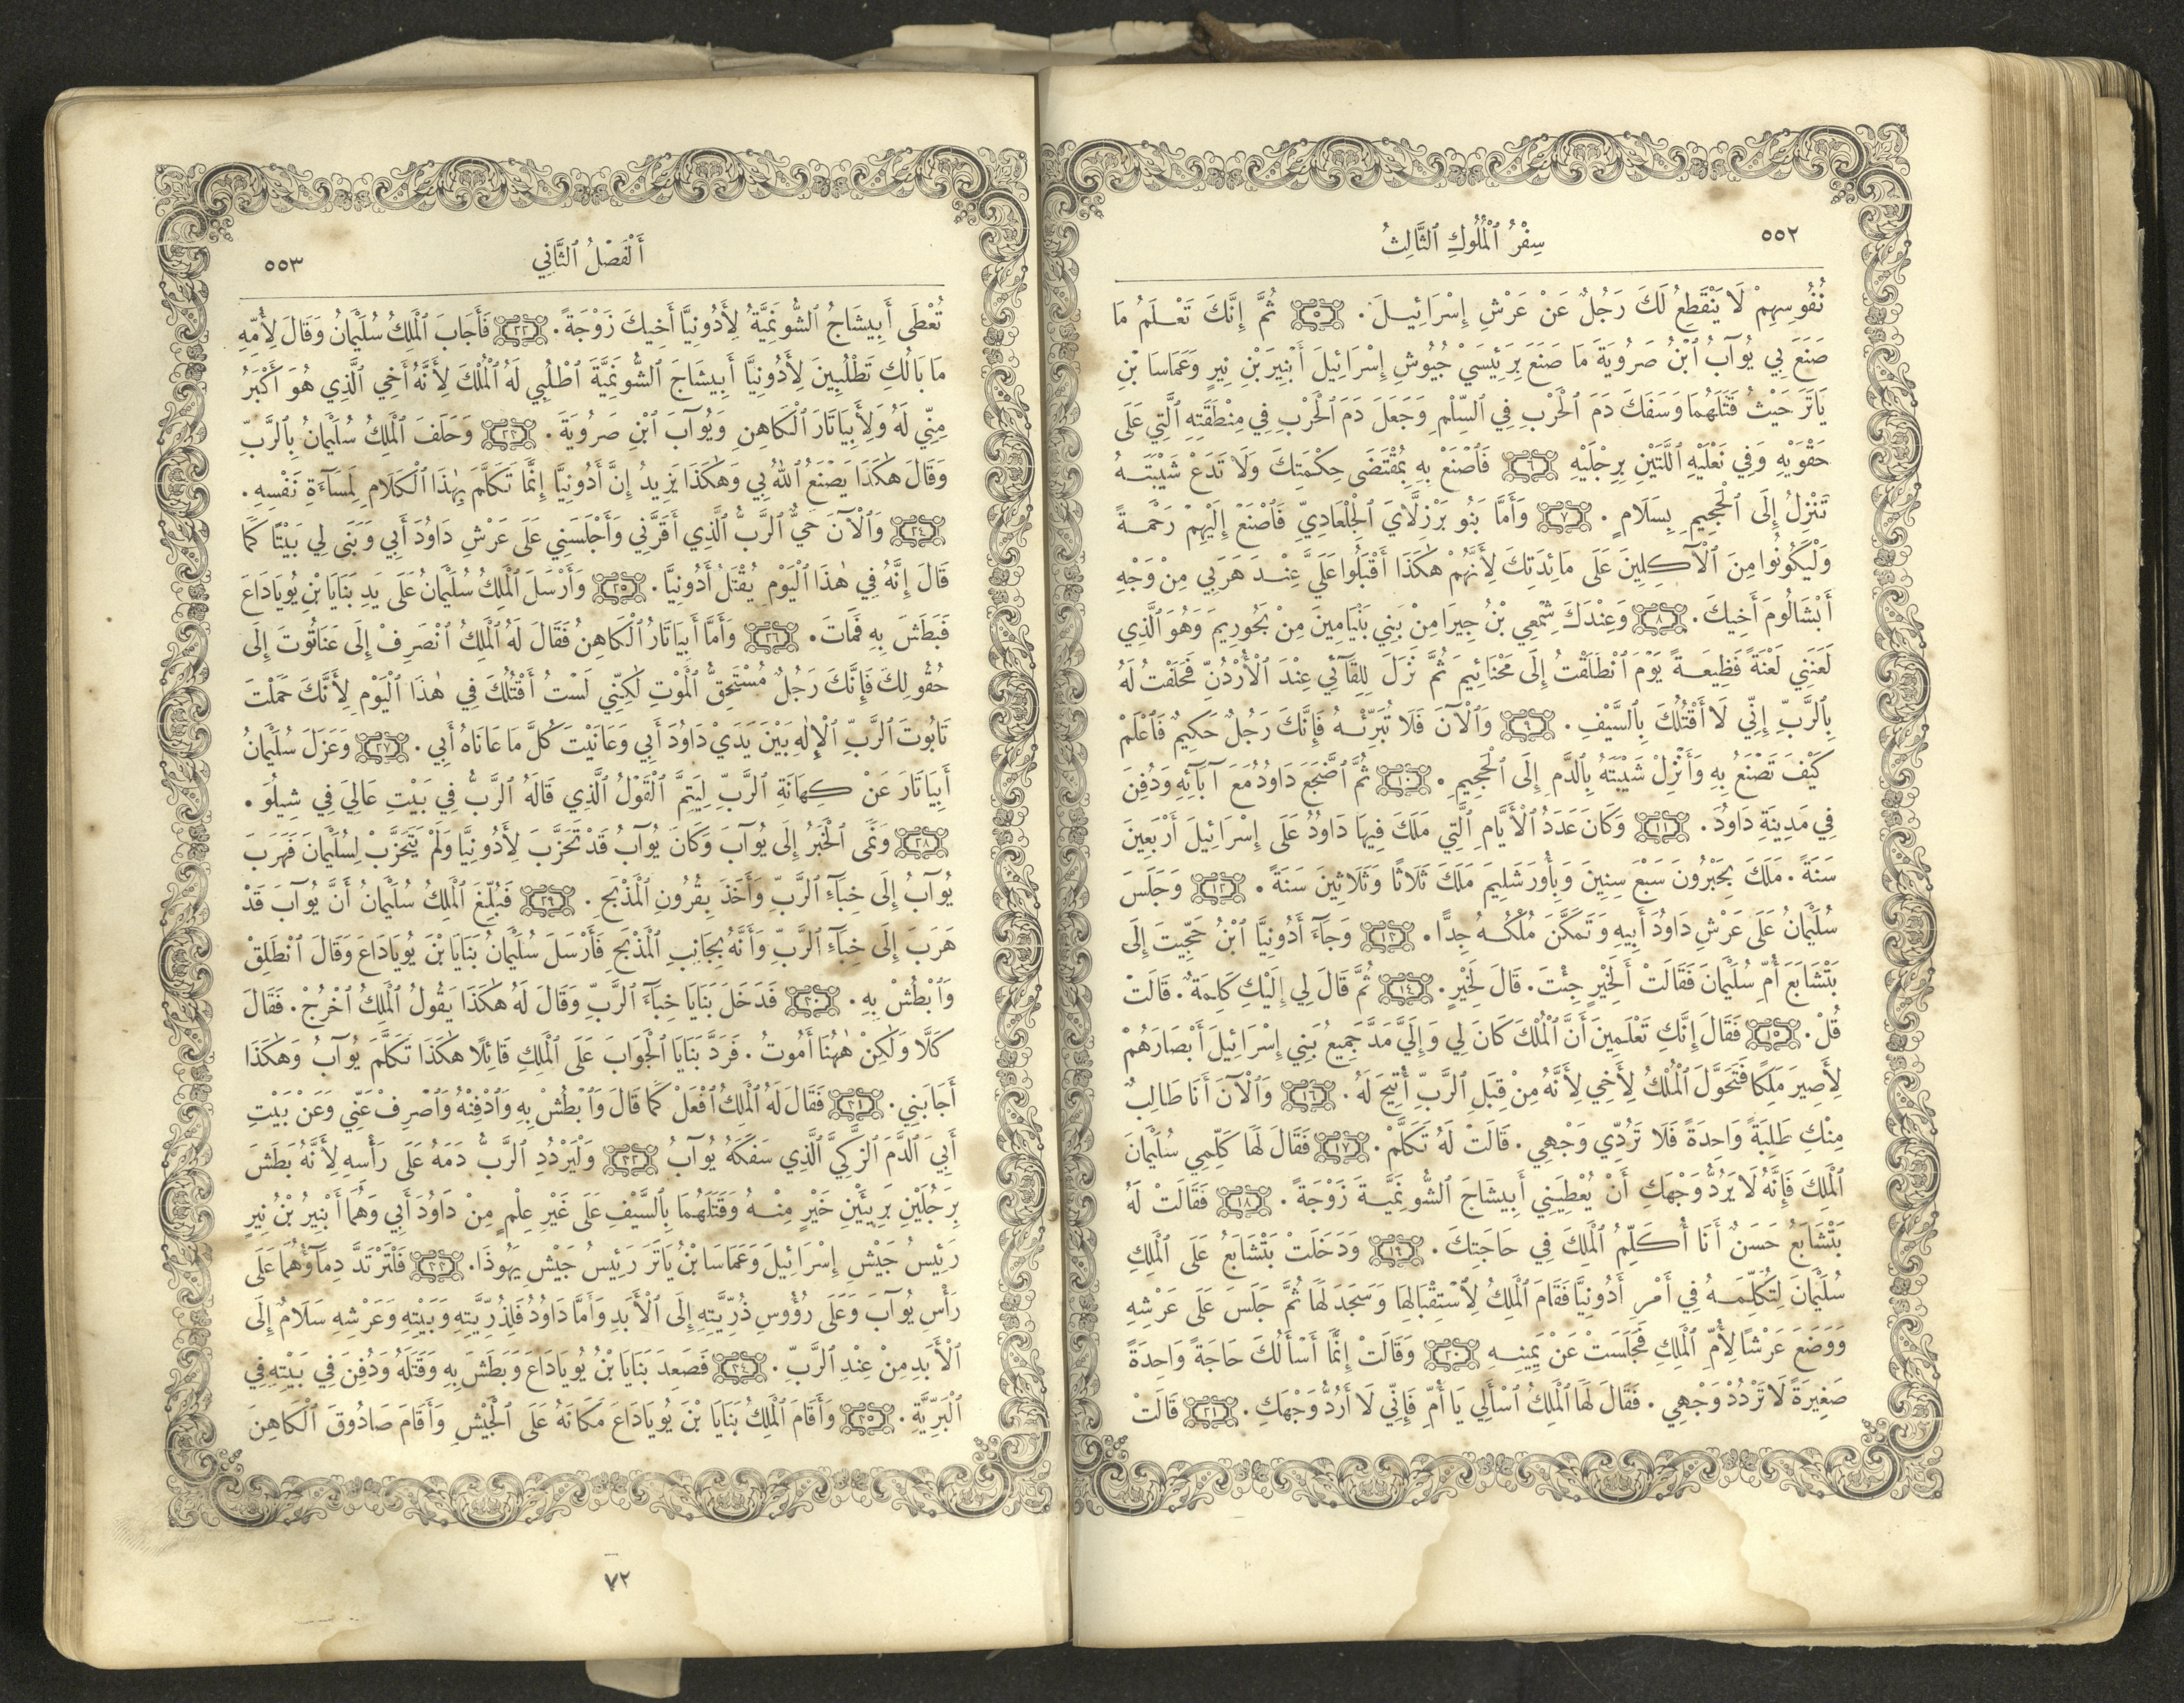 ٥٥٢
سِفْرُ ٱلْمُلُوكِ ٱلثَّالِثُ
نُفُوسِهِمْ لَا يَنْقَطِعُ لَكَ رَجُلٌ عَنْ عَرْشِ إِسْرَائِيلَ. ٥ ثُمَّ إِنَّكَ تَعْلَمُ مَا
صَنَعَ بِي يُوآبُ ٱبْنُ صَرُويَةَ مَا صَنَعَ بِرَئِيسَيْ جُيُوشِ إِسْرَائِيلَ أَبْنِيرَ بْنِ نِيرٍ وَعَمَاسَا بْنِ
يَاتَرَ حَيْثُ قَتَلَهُمَا وَسَفَكَ دَمَ ٱلْحَرْبِ فِي ٱلسِّلْمِ وَجَعَلَ دَمَ ٱلْحَرْبِ فِي مِنْطَقَتِهِ ٱلَّتِي عَلَى
حَقْوَيْهِ وَفِي نَعْلَيْهِ ٱللَّتَيْنِ بِرِجْلَيْهِ ٦ فَٱصْنَعْ بِهِ بِمُقْتَضَى حِكْمَتِكَ وَلَا تَدَعْ شَيْبَتَهُ
تَنْزِلُ إِلَى ٱلْجَحِيمِ بِسَلَامٍ. ٧ وَأَمَّا بَنُو بَرْزِلَّايَ ٱلْجِلْعَادِيِّ فَٱصْنَعْ إِلَيْهِمْ رَحْمَةً
وَلْيَكُونُوا مِنَ ٱلْآكِلِينَ عَلَى مَائِدَتِكَ لِأَنَّهُمْ هٰكَذَا أَقْبَلُوا عَلَيَّ عِنْدَ هَرَبِي مِنْ وَجْهِ
أَبْشَالُومَ أَخِيكَ. ٨ وَعِنْدَكَ شِمْعِي بْنُ جِيرَا مِنْ بَنِي بَنْيَامِينَ مِنْ بَحُورِيمَ وَهُوَ ٱلَّذِي
لَعَنَنِي لَعْنَةً فَظِيعَةً يَوْمَ ٱنْطَلَقْتُ إِلَى مَحْنَائِيمَ ثُمَّ نَزَلَ لِلِقَآئِي عِنْدَ ٱلْأُرْدُنِّ فَحَلَفْتُ لَهُ
بِٱلرَّبِّ إِنِّي لَا أَقْتُلُكَ بِٱلسَّيْفِ. ٩ وَٱلْآنَ فَلَا تُبَرِّئْهُ فَإِنَّكَ رَجُلٌ حَكِيمٌ فَٱعْلَمْ
كَيْفَ تَصْنَعُ بِهِ وَأَنْزِلْ شَيْبَتَهُ بِٱلدَّمِ إِلَى ٱلْجَحِيمِ. ١٠ ثُمَّ ٱضَّجَعَ دَاوُدُ مَعَ آبَآئِهِ وَدُفِنَ
فِي مَدِينَةِ دَاوُدَ. ١١ وَكَانَ عَدَدُ ٱلْأَيَّامِ ٱلَّتِي مَلَكَ فِيهَا دَاوُدُ عَلَى إِسْرَائِيلَ أَرْبَعِينَ
سَنَةً. مَلَكَ بِحَبْرُونَ سَبْعَ سِنِينَ وَبِأُورَشَلِيمَ مَلَكَ ثَلَاثًا وَثَلَاثِينَ سَنَةً. ١٢ وَجَلَسَ
سُلَيْمَانُ عَلَى عَرْشِ دَاوُدَ أَبِيهِ وَتَمَكَّنَ مُلْكُهُ جِدًّا. ١٣ وَجَآءَ أَدُونِيَّا ٱبْنُ حَجِّيتَ إِلَى
بَتْشَابَعَ أُمِّ سُلَيْمَانَ فَقَالَتْ أَلِخَيْرٍ جِئْتَ. قَالَ لِخَيْرٍ. ١٤ ثُمَّ قَالَ لِي إِلَيْكِ كَلِمَةٌ. قَالَتْ
قُلْ. ١٥ فَقَالَ إِنَّكِ تَعْلَمِينَ أَنَّ ٱلْمُلْكَ كَانَ لِي وَإِلَيَّ مَدَّ جَمِيعُ بَنِي إِسْرَائِيلَ أَبْصَارَهُمْ
لِأَصِيرَ مَلِكًا فَتَحَوَّلَ ٱلْمُلْكُ لِأَخِي لِأَنَّهُ مِنْ قِبَلِ ٱلرَّبِّ أُتِيحَ لَهُ. ١٦ وَٱلْآنَ أَنَا طَالِبٌ
مِنْكِ طَلِبَةً وَاحِدَةً فَلَا تَرُدِّي وَجْهِي. قَالَتْ لَهُ تَكَلَّمْ. ١٧ فَقَالَ لَهَا كَلِّمِي سُلَيْمَانَ
ٱلْمَلِكَ فَإِنَّهُ لَا يَرُدُّ وَجْهَكِ أَنْ يُعْطِيَنِي أَبِيشَاجَ ٱلشُّونَمِيَّةَ زَوْجَةً. ١٨ فَقَالَتْ لَهُ
بَتْشَابَعُ حَسَنٌ أَنَا أُكَلِّمُ ٱلْمَلِكَ فِي حَاجَتِكَ. ١٩ وَدَخَلَتْ بَتْشَابَعُ عَلَى ٱلْمَلِكِ
سُلَيْمَانَ لِتُكَلِّمَهُ فِي أَمْرِ أَدُونِيَّا فَقَامَ ٱلْمَلِكُ لِٱسْتِقْبَالِهَا وَسَجَدَ لَهَا ثُمَّ جَلَسَ عَلَى عَرْشِهِ
وَوَضَعَ عَرْشًا لِأُمِّ ٱلْمَلِكِ فَجَلَسَتْ عَنْ يَمِينِهِ ٢٠ وَقَالَتْ إِنَّمَا أَسْأَلُكَ حَاجَةً وَاحِدَةً
صَغِيرَةً لَا تَرْدُدْ وَجْهِي. فَقَالَ لَهَا ٱلْمَلِكُ ٱسْأَلِي يَا أُمِّ فَإِنِّي لَا أَرُدُّ وَجْهَكِ. ٢١ قَالَتْ
أَلْفَصْلُ ٱلثَّانِي
٥٥٣
تُعْطَى أَبِيشَاجُ ٱلشُّونَمِيَّةُ لِأَدُونِيَّا أَخِيكَ زَوْجَةً. ٢٢ فَأَجَابَ ٱلْمَلِكُ سُلَيْمَانُ وَقَالَ لِأُمِّهِ
مَا بَالُكِ تَطْلُبِينَ لِأَدُونِيَّا أَبِيشَاجَ ٱلشُّونَمِيَّةَ ٱطْلُبِي لَهُ ٱلْمُلْكَ لِأَنَّهُ أَخِي ٱلَّذِي هُوَ أَكْبَرُ
مِنِّي لَهُ وَلِأَبِيَاتَارَ ٱلْكَاهِنِ وَيُوآبَ ٱبْنِ صَرُويَةَ. ٢٣ وَحَلَفَ ٱلْمَلِكُ سُلَيْمَانُ بِٱلرَّبِّ
وَقَالَ هٰكَذَا يَصْنَعُ ٱللهُ بِي وَهٰكَذَا يَزِيدُ إِنَّ أَدُونِيَّا إِنَّمَا تَكَلَّمَ بِهٰذَا ٱلْكَلَامِ لِمَسَآءَةِ نَفْسِهِ.
٢٤ وَٱلْآنَ حَيٌّ ٱلرَّبُّ ٱلَّذِي أَقَرَّنِي وَأَجْلَسَنِي عَلَى عَرْشِ دَاوُدَ أَبِي وَبَنَى لِي بَيْتًا كَمَا
قَالَ إِنَّهُ فِي هٰذَا ٱلْيَوْمِ يُقْتَلُ أَدُونِيَّا. ٢٥ وَأَرْسَلَ ٱلْمَلِكُ سُلَيْمَانُ عَلَى يَدِ بَنَايَا بْنِ يُويَادَاعَ
فَبَطَشَ بِهِ فَمَاتَ. ٢٦ وَأَمَّا أَبِيَاتَارُ ٱلْكَاهِنُ فَقَالَ لَهُ ٱلْمَلِكُ ٱنْصَرِفْ إِلَى عَنَاتُوتَ إِلَى
حُقُولِكَ فَإِنَّكَ رَجُلٌ مُسْتَحِقُّ ٱلْمَوْتِ لٰكِنِّي لَسْتُ أَقْتُلُكَ فِي هٰذَا ٱلْيَوْمِ لِأَنَّكَ حَمَلْتَ
تَابُوتَ ٱلرَّبِّ ٱلْإِلٰهِ بَيْنَ يَدَيْ دَاوُدَ أَبِي وَعَانَيْتَ كُلَّ مَا عَانَاهُ أَبِي. ٢٧ وَعَزَلَ سُلَيْمَانُ
أَبِيَاتَارَ عَنْ كِهَانَةِ ٱلرَّبِّ لِيَتِمَّ ٱلْقَوْلُ ٱلَّذِي قَالَهُ ٱلرَّبُّ فِي بَيْتِ عَالِيَ فِي شِيلُوَ.
٢٨ وَنَمَى ٱلْخَبَرُ إِلَى يُوآبَ وَكَانَ يُوآبُ قَدْ تَحَزَّبَ لِأَدُونِيَّا وَلَمْ يَتَحَزَّبْ لِسُلَيْمَانَ فَهَرَبَ
يُوآبُ إِلَى خِبَآءِ ٱلرَّبِّ وَأَخَذَ بِقُرُونِ ٱلْمَذْبَحِ. ٢٩ فَبُلِّغَ ٱلْمَلِكُ سُلَيْمَانُ أَنَّ يُوآبَ قَدْ
هَرَبَ إِلَى خِبَآءِ ٱلرَّبِّ وَأَنَّهُ بِجَانِبِ ٱلْمَذْبَحِ فَأَرْسَلَ سُلَيْمَانُ بَنَايَا بْنَ يُويَادَاعَ وَقَالَ ٱنْطَلِقْ
وَٱبْطُشْ بِهِ. ٣٠ فَدَخَلَ بَنَايَا خِبَآءَ ٱلرَّبِّ وَقَالَ لَهُ هٰكَذَا يَقُولُ ٱلْمَلِكُ ٱخْرُجْ. فَقَالَ
كَلَّا وَلٰكِنْ هٰهُنَا أَمُوتُ. فَرَدَّ بَنَايَا ٱلْجَوَابَ عَلَى ٱلْمَلِكِ قَائِلًا هٰكَذَا تَكَلَّمَ يُوآبُ وَهٰكَذَا
أَجَابَنِي. ٣١ فَقَالَ لَهُ ٱلْمَلِكُ ٱفْعَلْ كَمَا قَالَ وَٱبْطُشْ بِهِ وَٱدْفِنْهُ وَٱصْرِفْ عَنِّي وَعَنْ بَيْتِ
أَبِيَ ٱلدَّمَ ٱلزَّكِيَّ ٱلَّذِي سَفَكَهُ يُوآبُ ٣٢ وَلْيَرْدُدِ ٱلرَّبُّ دَمَهُ عَلَى رَأْسِهِ لِأَنَّهُ بَطَشَ
بِرَجُلَيْنِ بَرِيئَيْنِ خَيْرٍ مِنْهُ وَقَتَلَهُمَا بِٱلسَّيْفِ عَلَى غَيْرِ عِلْمٍ مِنْ دَاوُدَ أَبِي وَهُمَا أَبْنِيرُ بْنُ نِيرٍ
رَئِيسُ جَيْشِ إِسْرَائِيلَ وَعَمَاسَا بْنُ يَاتَرَ رَئِيسُ جَيْشِ يَهُوذَا. ٣٣ فَلْتَرْتَدَّ دِمَآؤُهُمَا عَلَى
رَأْسِ يُوآبَ وَعَلَى رُؤُوسِ ذُرِّيَّتِهِ إِلَى ٱلْأَبَدِ وَأَمَّا دَاوُدُ فَلِذُرِّيَّتِهِ وَبَيْتِهِ وَعَرْشِهِ سَلَامٌ إِلَى
ٱلْأَبَدِ مِنْ عِنْدِ ٱلرَّبِّ. ٣٤ فَصَعِدَ بَنَايَا بْنُ يُويَادَاعَ وَبَطَشَ بِهِ وَقَتَلَهُ وَدُفِنَ فِي بَيْتِهِ فِي
ٱلْبَرِّيَّةِ. ٣٥ وَأَقَامَ ٱلْمَلِكُ بَنَايَا بْنَ يُويَادَاعَ مَكَانَهُ عَلَى ٱلْجَيْشِ وَأَقَامَ صَادُوقَ ٱلْكَاهِنَ
٧٢